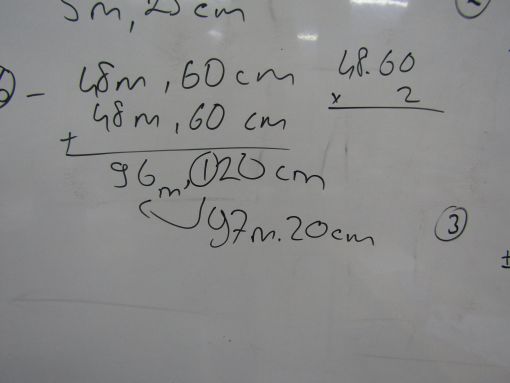 5m, 25cm
- 48m, 60cm
+ 48m, 60 cm
96m, 120cm
97m.20cm
48.60
x 2
3
±